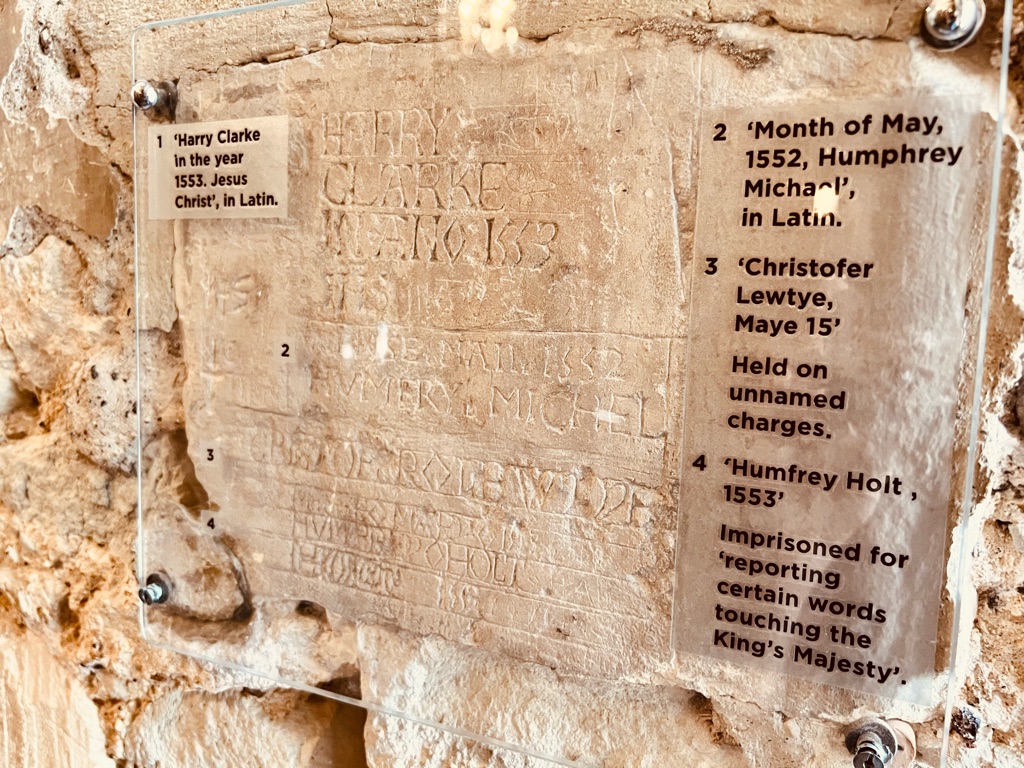 1 'Harry Clarke
in the year
1553. Jesus
Christ', in Latin.
HARRY
CLARKE
ANO 1553
2
MAII. 1552
MICHEL
3
4
HOLT
2 'Month of May,
1552, Humphrey
Michael',
in Latin.
3 'Christofer
Lewtye,
Maye 15'
Held on
unnamed
charges.
4 'Humfrey Holt ,
1553'
Imprisoned for
'reporting
certain words
touching the
King's Majesty'.